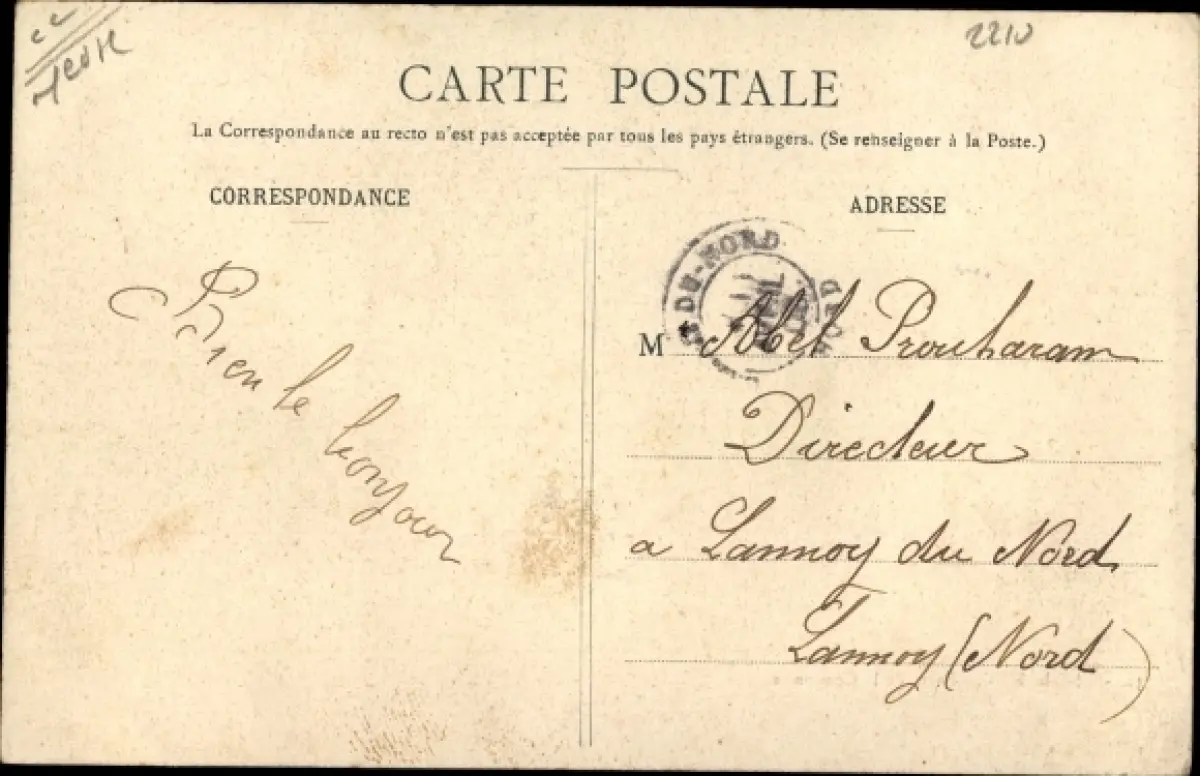 2210
CARTE POSTALE
La Correspondance au recto n'est pas acceptée par tous les pays étrangers. (Se renseigner à la Poste.)
CORRESPONDANCE
ADRESSE
Bien le bonjour
DU-NORD
NORD
M Abel Prouharam
Directeur
a Lannoy du Nord
Lannoy (Nord)